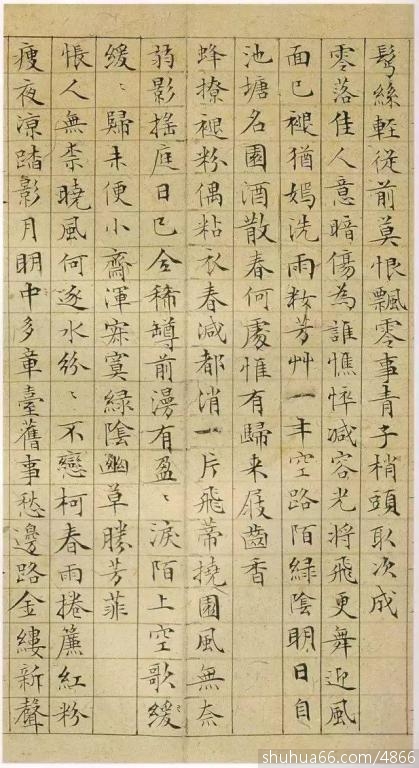 鬂絲輕從前莫恨飄零事青子梢頭取次成
零落佳人意暗傷為誰憔悴減容光將飛更舞迎風
面已褪猶嫣洗雨粧芳艸一年空路陌綠陰明日自
池塘名園酒散春何處惟有歸来屐齒香
蜂撩褪粉偶粘衣春減都消一片飛蒂撓園風無奈
弱影搖庭日已全稀罇前漫有盈〻淚陌上空歌緩〻
緩〻歸未便小齋渾寂寞綠陰幽草勝芳菲
悵人無柰曉風何逐水紛〻不戀柯春雨捲簾紅粉
瘦夜涼踏影月明中多章臺舊事愁邊路金縷新聲
shuhua66.com/4866